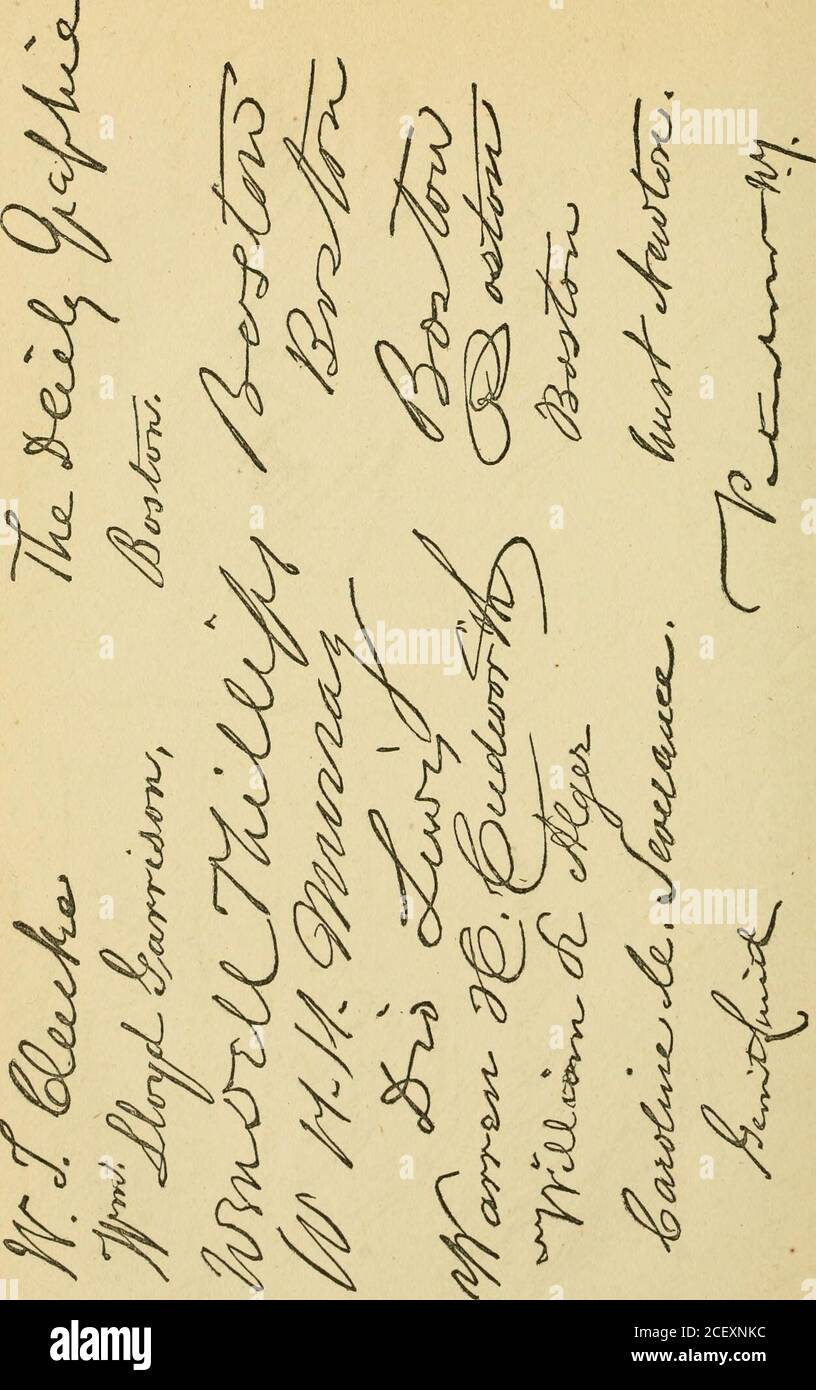 W. T. Clarke The Daily Graphic
Wm. Lloyd Garrison, Boston.
Wendell Phillips Boston
W H. H. Murray Boston
Dio Lewis Boston
Warren H. Cudworth Boston
William R Alger Boston
Caroline M. Severance. West Newton.
Gerrit Smith Peterboro N.Y.
alamy
Image ID: 2CEXNKC
www.alamy.com